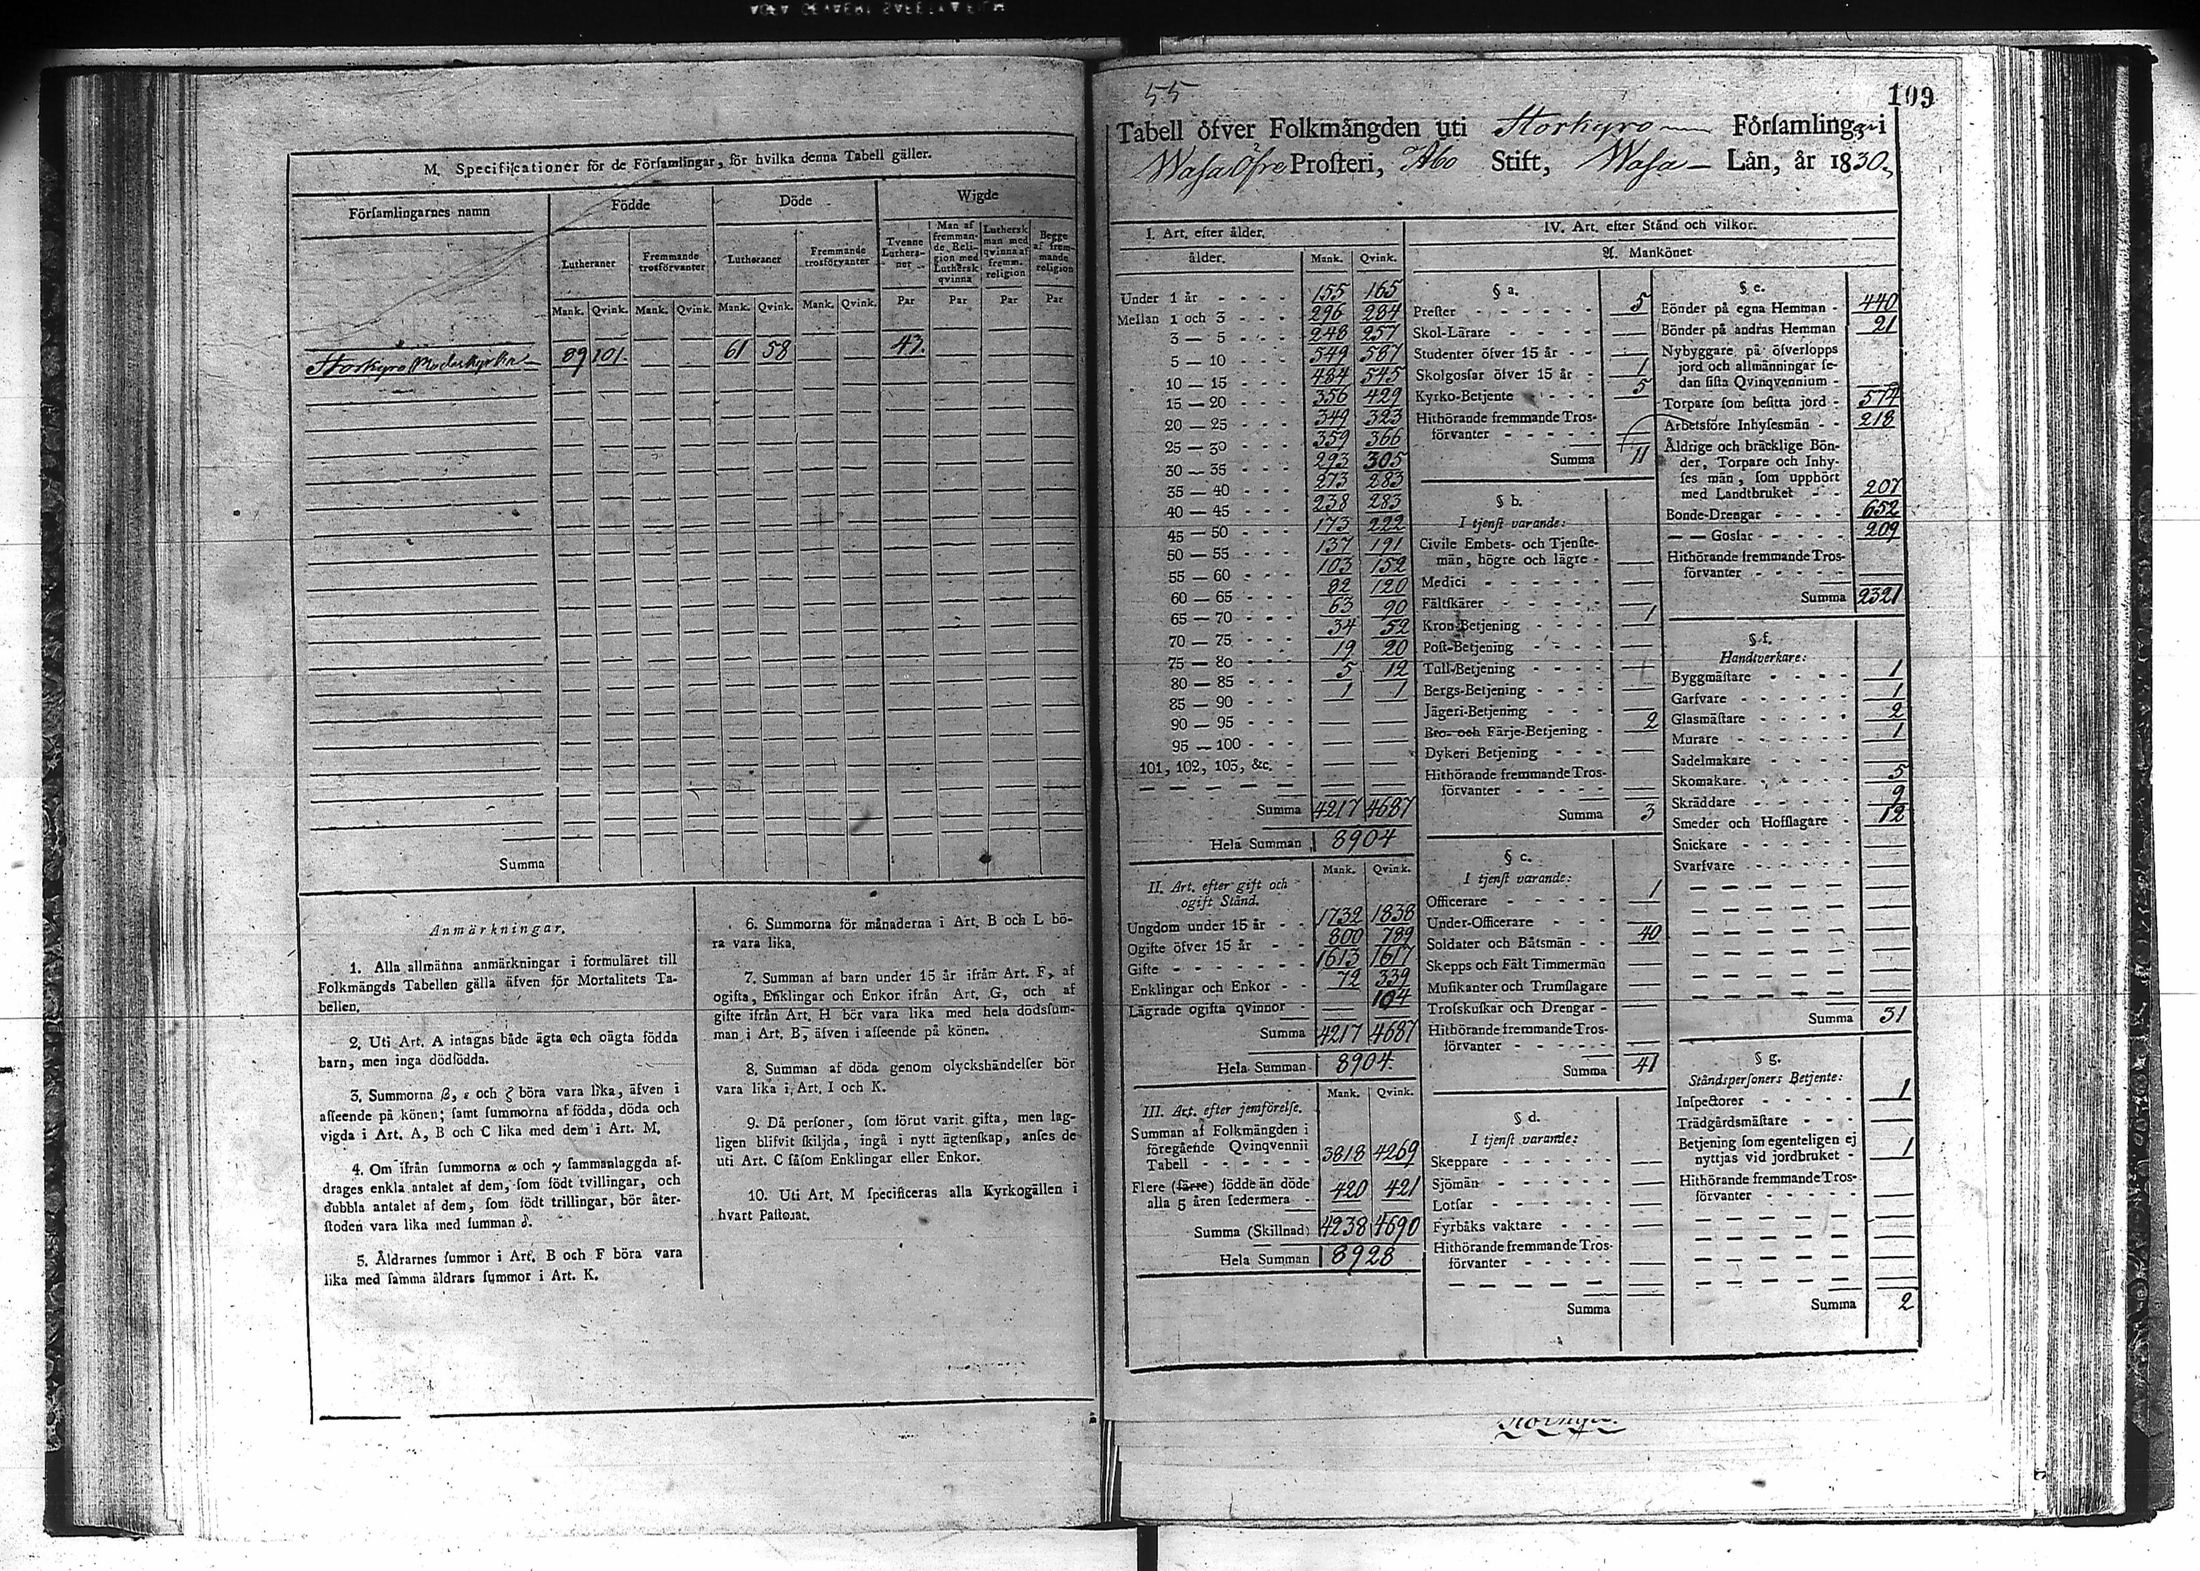 M. Specificationer för de Församlingar, för hvilka denna Tabell gäller.
Församlingarnes namn
Födde
Döde
Wigde
Lutheraner
Fremmande trosförvanter
Lutheraner
Fremmande trosförvanter
Tvenne Lutheraner
Man af fremmande Religion med Luthersk qvinna
Luthersk man med qvinna af fremm. religion
Begge af fremmande religion
Mank. Qvink. Mank. Qvink. Mank. Qvink. Mank. Qvink. Par Par Par Par
Storkyro Moderkyrka 89 101 — — 61 58 — — 43. — — —
Summa
Anmärkningar.
1. Alla allmänna anmärkningar i formuläret till
Folkmängds Tabellen gälla äfven för Mortalitets Ta-
bellen.
2. Uti Art. A intagas både ägta och oägta födda
barn, men inga dödfödda.
3. Summorna β, ε och ζ böra vara lika, äfven i
afseende på könen; samt summorna af födda, döda och
vigda i Art. A, B och C lika med dem i Art. M.
4. Om ifrån summorna α och γ sammanlaggda af-
drages enkla antalet af dem, som födt tvillingar, och
dubbla antalet af dem, som födt trillingar, bör åter-
stoden vara lika med summan δ.
5. Åldrarnes summor i Art. B och F böra vara
lika med samma åldrars summor i Art. K.
6. Summorna för månaderna i Art. B och L bö-
ra vara lika.
7. Summan af barn under 15 år ifrån Art. F, af
ogifta, Enklingar och Enkor ifrån Art. G, och af
gifte ifrån Art. H bör vara lika med hela dödssum-
man i Art. B, äfven i afseende på könen.
8. Summan af döda genom olyckshändelser bör
vara lika i Art. I och K.
9. Då personer, som förut varit gifta, men lag-
ligen blifvit skiljda, ingå i nytt ägtenskap, anses de
uti Art. C såsom Enklingar eller Enkor.
10. Uti Art. M specificeras alla Kyrkogällen i
hvart Pastorat.
55
109
Tabell öfver Folkmängden uti Storkyro Församlingar i
Wasa Öfre Prosteri, Åbo Stift, Wasa Län, år 1830.
I. Art. efter ålder.
ålder. Mank. Qvink.
Under 1 år 155 165
Mellan 1 och 3 296 284
3 — 5 248 257
5 — 10 549 587
10 — 15 484 545
15 — 20 356 429
20 — 25 349 323
25 — 30 359 366
30 — 35 293 305
35 — 40 273 283
40 — 45 238 283
45 — 50 173 222
50 — 55 137 191
55 — 60 103 152
60 — 65 82 120
65 — 70 63 90
70 — 75 34 52
75 — 80 19 20
80 — 85 5 12
85 — 90 1 1
90 — 95 — —
95 — 100 — —
101, 102, 103, &c. — —
Summa 4217 4687
Hela Summan 8904
II. Art. efter gift och ogift Stånd.
Mank. Qvink.
Ungdom under 15 år 1732 1838
Ogifte öfver 15 år 800 789
Gifte 1613 1617
Enklingar och Enkor 72 339
Lägrade ogifta qvinnor — 104
Summa 4217 4687
Hela Summan 8904.
III. Art. efter jemförelse.
Mank. Qvink.
Summan af Folkmängden i
föregående Qvinqvennii
Tabell 3818 4269
Flere (färre) födde än döde
alla 5 åren sedermera 420 421
Summa (Skillnad) 4238 4690
Hela Summan 8928
IV. Art. efter Stånd och vilkor.
A. Mankönet
§ a.
Prester 5
Skol-Lärare
Studenter öfver 15 år —
Skolgossar öfver 15 år 1
Kyrko-Betjente 5
Hithörande fremmande Tros-
förvanter
Summa 11
§ b.
I tjenst varande:
Civile Embets- och Tjenste-
män, högre och lägre —
Medici —
Fältskärer —
Kron-Betjening 1
Post-Betjening —
Tull-Betjening —
Bergs-Betjening —
Jägeri-Betjening —
Bro- och Färje-Betjening 2
Dykeri Betjening —
Hithörande fremmande Tros-
förvanter —
Summa 3
§ c.
I tjenst varande:
Officerare 1
Under-Officerare —
Soldater och Båtsmän 40
Skepps och Fält Timmermän —
Musikanter och Trumslagare —
Trosskuskar och Drengar —
Hithörande fremmande Tros-
förvanter —
Summa 41
§ d.
I tjenst varande:
Skeppare —
Sjömän —
Lotsar —
Fyrbåks vaktare —
Hithörande fremmande Tros-
förvanter —
Summa
§ e.
Bönder på egna Hemman 440
Bönder på andras Hemman 21
Nybyggare på öfverlopps
jord och allmänningar se-
dan sista Qvinqvennium —
Torpare som besitta jord 574
Arbetsföre Inhysesmän 218
Åldrige och bräcklige Bön-
der, Torpare och Inhy-
ses män, som upphört
med Landtbruket 207
Bonde-Drengar 652
— — Gossar 209
Hithörande fremmande Tros-
förvanter —
Summa 2321
§ f.
Handtverkare:
Byggmästare 1
Garfvare 1
Glasmästare 2
Murare 1
Sadelmakare —
Skomakare 5
Skräddare 9
Smeder och Hofslagare 12
Snickare —
Svarfvare —
Summa 31
§ g.
Ståndspersoners Betjente:
Inspectorer 1
Trädgårdsmästare —
Betjening som egenteligen ej
nyttjas vid jordbruket 1
Hithörande fremmande Tros-
förvanter —
Summa 2